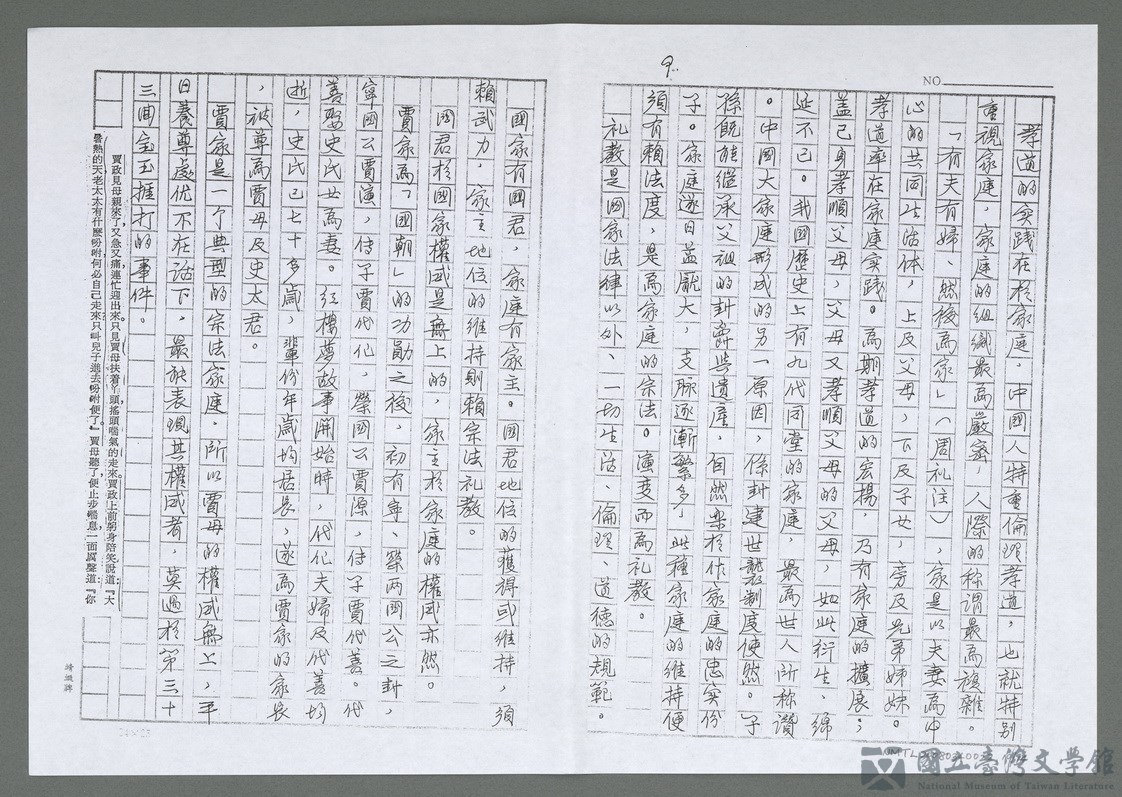 9.
NO
孝道的实践在於家庭，中國人特重倫理孝道，也就特別
重視家庭，家庭的組織最為嚴密，人際的称謂最為複雜。
「有夫有婦、然後為家」（周礼注），家是以夫妻為中
心的共同生活体，上及父母，下及子女，旁及兄弟姊妹。
孝道率在家庭实践。為期孝道的宏揚，乃有家庭的擴展；
蓋己身孝順父母，父母又孝順父母的父母，如此衍生、綿
延不已。我國歷史上有九代同堂的家庭，最為世人所称讚
。中國大家庭形成的另一原因，係封建世襲制度使然。子
孫既能継承父祖的封爵与遺產，自然樂於作家庭的忠实份
子。家庭遂日益龐大，支脈逐漸繁多，此種家庭的維持便
須有賴法度，是為家庭的宗法。演变而為礼教。
礼教是國家法律以外、一切生活、倫理、道德的規範。
國家有國君，家庭有家主。國君地位的獲得或维持，須
賴武力，家主地位的维持則賴宗法礼教。
國君於國家權威是無上的，家主於家庭的權威亦然。
賈家為「國朝」的功勛之後，初有寧、榮两國公之封，
寧國公賈演，侍子賈代化，榮國公賈源，侍子賈代善。代
善娶史氏女為妻。紅樓夢故事開始時，代化夫婦及代善均
逝，史氏已七十多歲，輩份年歲均居長，遂為賈家的家長
，被尊為賈母及史太君。
賈家是一个典型的宗法家庭，所以賈母的權威無上，平
日養尊處优不在話下，最能表現其權威者，莫過於第三十
三回宝玉捱打的事件。
賈政見母親來了，又急又痛，連忙迎出來，只見賈母扶着丫頭，搖頭喘氣的走來，賈政上前躬身陪笑說道：『大
暑熱的天，老太太有什麼吩咐，何必自己走來，只叫兒子進去吩咐便了。』賈母聽了，便止步喘息，一面厲聲道：『你
24×25
國立臺灣文學館
National Museum of Taiwan Literature